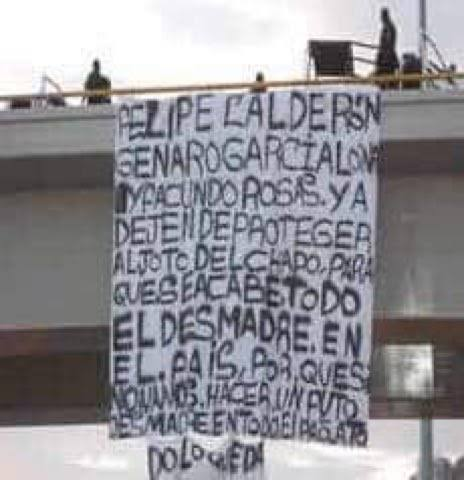 FELIPE CALDERÓN
GENARO GARCÍA LUNA
Y FACUNDO ROSAS. YA
DEJEN DE PROTEGER
AL JOTO DEL CHAPO, PARA
QUE SE ACABE TODO
EL DESMADRE. EN
EL. PAÍS, POR QUE SI
HACER UN PUTO
DESMADRE EN TODO El